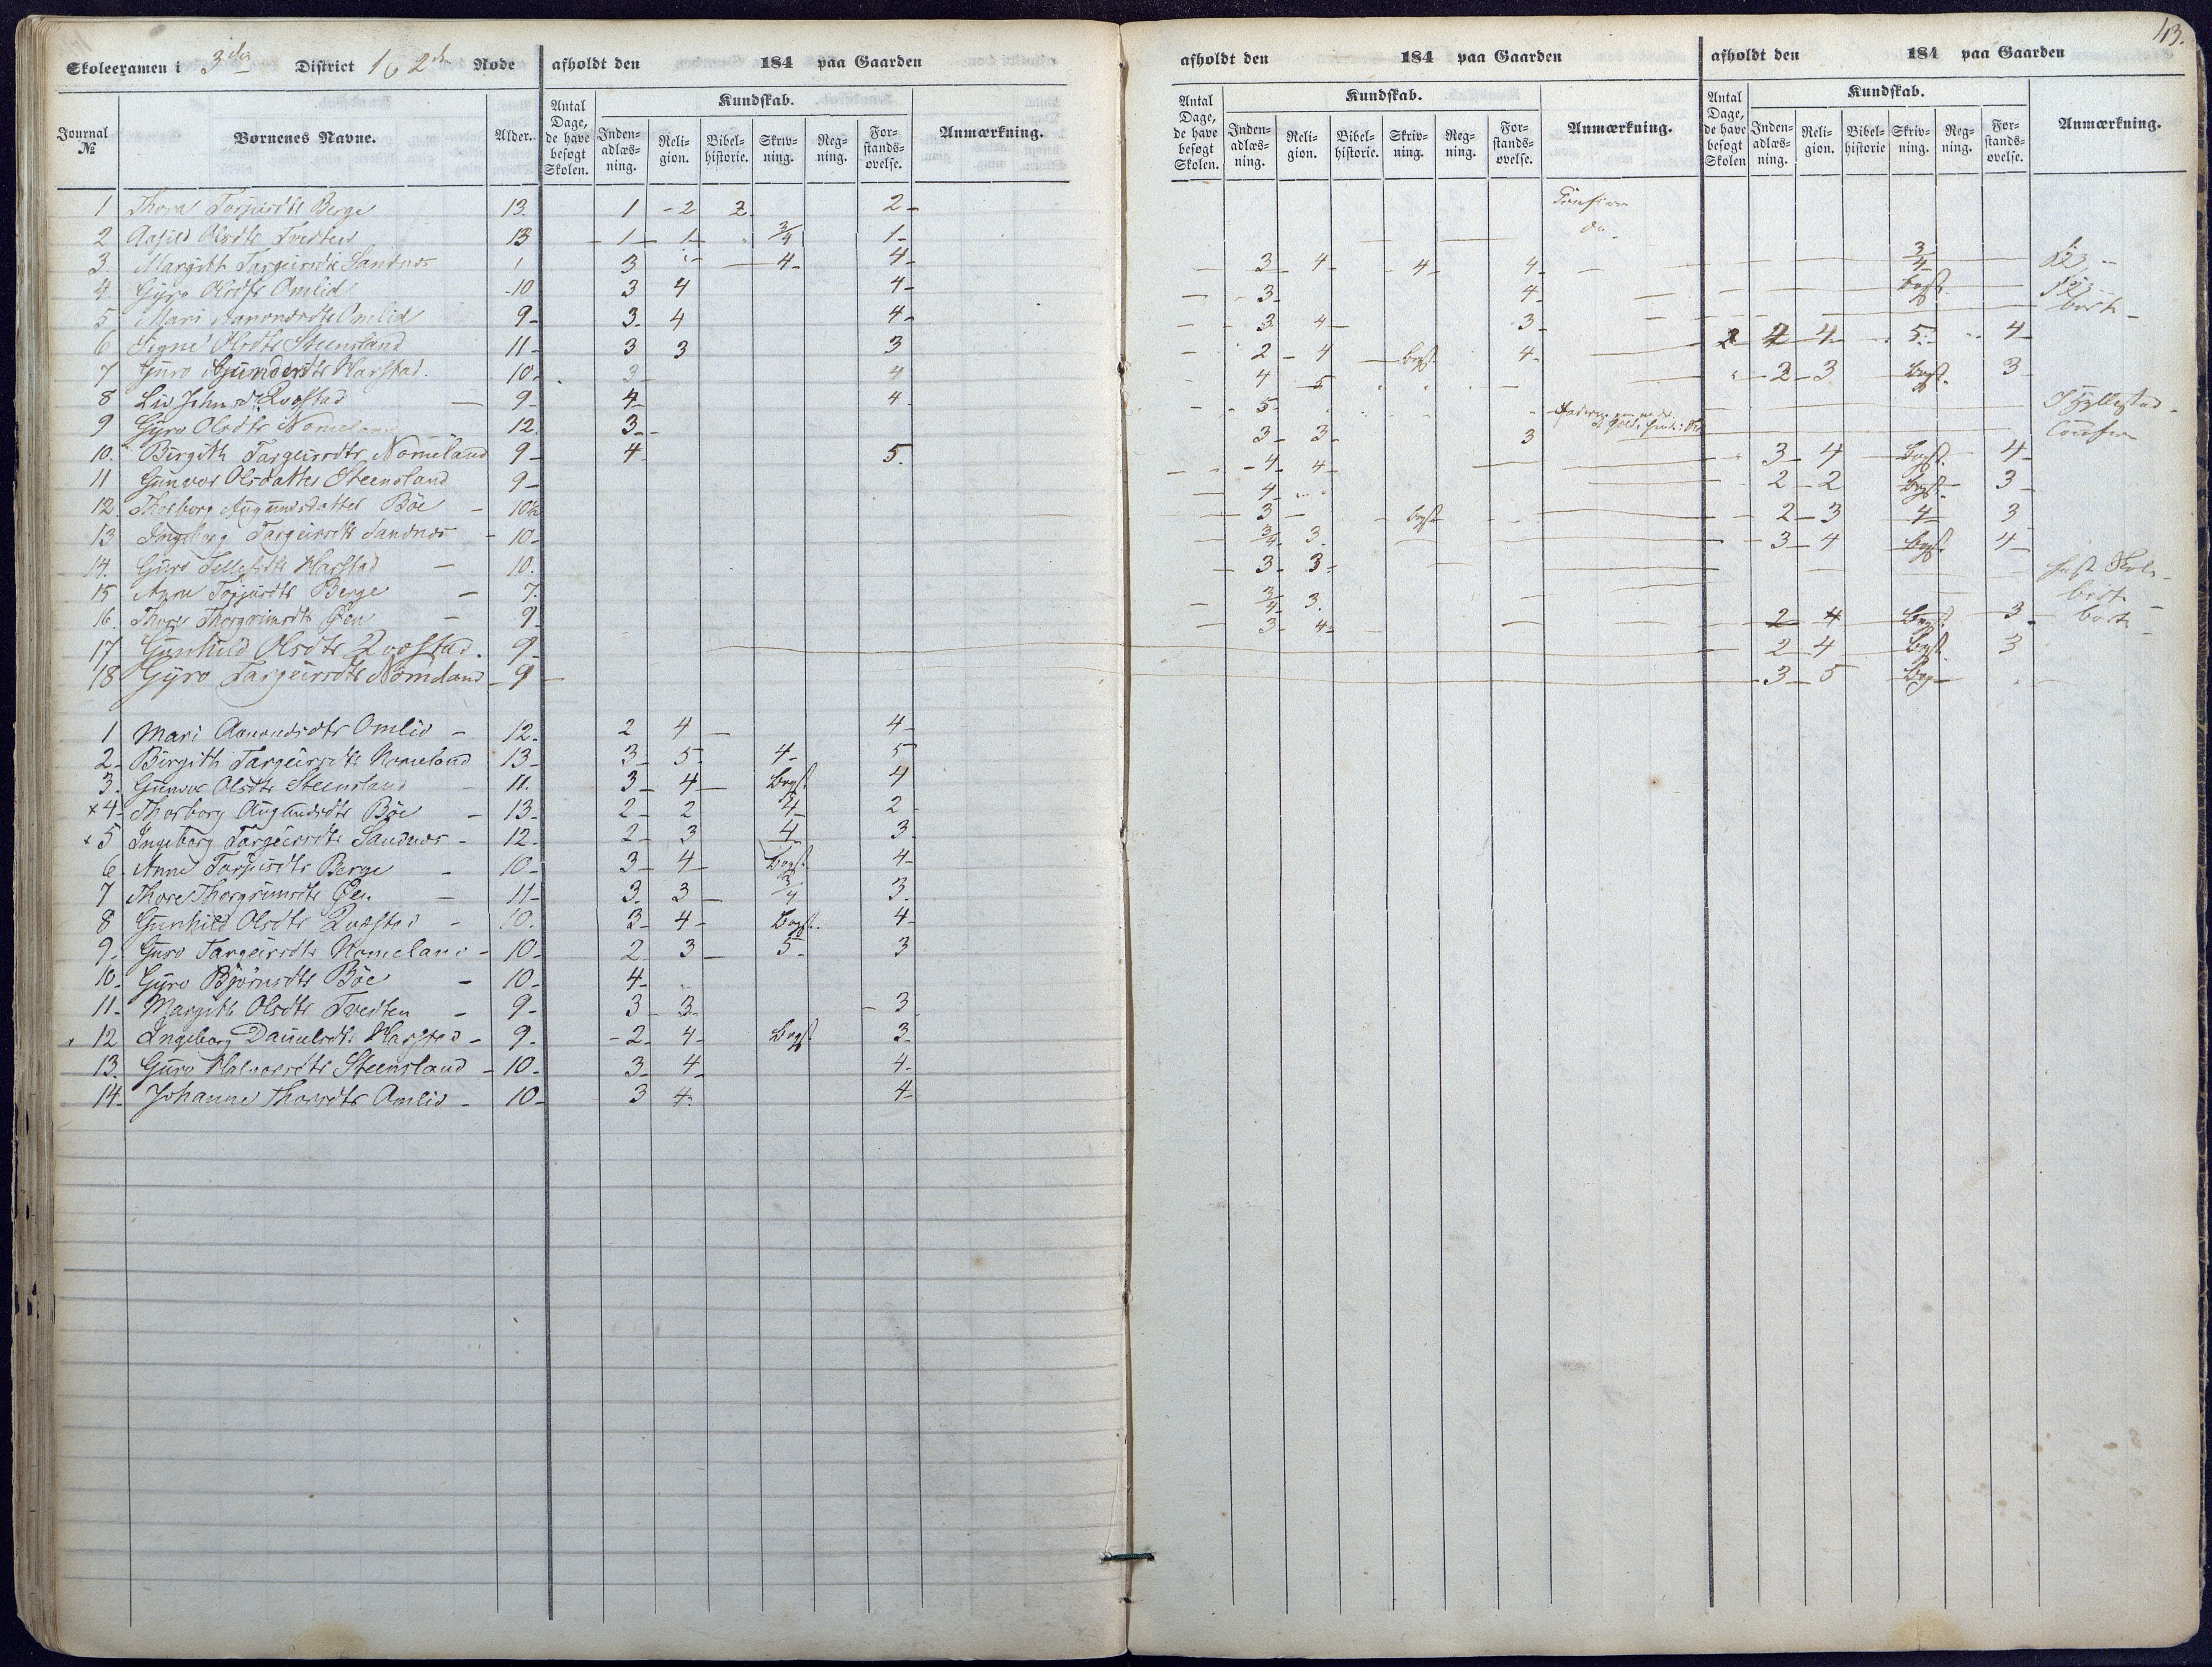 Skoleexamen i 3die District 1 & 2den Rode afholdt den 184 paa Gaarden
Journal № Børnenes Navne. Alder. Antal Dage, de have besøgt Skolen. Kundskab. Indenadlæsning. Religion. Bibelhistorie. Skrivning. Regning. Forstandsøvelse. Anmærkning.
1 Thora Torjusdtr Berge 13. 1 - 2 2. 2 -
2 Aasild Olsdtr Tvedten 13 - 1 - 1 - 3/4 1 -
3. Margith Targeirsdtr Sandnes 3 4 - 4 -
4. Gyro Olsdtr Omlid 10 3 4 4 -
5 Mari Aanonsdtr Omlid 9 - 3. 4 4 -
6 Signe Olsdtr Steensland 11 - 3 3 3
7 Guro Gundersdtr Harstad. 10. 3 - 4
8 Liv Johnsdtr Rvostad - 9 - 4 - 4 -
9 Gyro Olsdtr Nomeland 12. 3 -
10. Birgith Targeirsdtr Nomeland 9 - 4 5.
11 Gunvor Olsdatter Steensland 9 -
12. Thorborg Augundsdatter Böe - 10½
13 Ingeborg Targeirsdtr Sandnes - 10 -
14. Guro Tellefsdtr Harstad - 10.
15 Anne Torjusdtr Berge - 7.
16. Thore Thorgrimsdtr Øen - 9
17 Gunhild Olsdtr Rvostad. 9 -
18 Gyro Targeirsdtr Nomeland - 9 -
1 Mari Aanonsdtr Omlid - 12. 2 4 - 4 -
2 - Birgith Targeirsdtr Nomeland 13 - 3 - 5 - 4 - 5
3. Gunvor Olsdtr Steensland - 11. 3 - 4 - Begt. 4
x 4 - Thorborg Augundsdtr Böe - 13 - 2 - 2 4 - 2 -
x 5 Ingeborg Targeirsdtr Sandnes - 12. 2 - 3 4 3.
6. Anne Torjusdtr Berge - 10 - 3 - 4 - Begt 4 -
7 Thore Thorgrimsdtr Øen - 11 - 3. 3 - 3/4 3.
8 Gunhild Olsdtr Rvostad - 10. 3 - 4 - Begt. 4 -
9. Guro Targeirsdtr Nomeland - 10 - 2 3 - 5 - 3
10. Gyro Björnsdtr Böe - 10 - 4 -
11 - Margith Olsdtr Tvedten - 9 - 3 - 3 - 3
12 Ingeborg Danielsdtr Harstad - 9 - - 2 - 4 - Begt 3 -
13. Guro Halvorsdtr Steensland - 10 - 3 - 4 - 4 -
14. Johanne Thorsdtr Omlid - 10 - 3 4 - 4 -
43.
afholdt den 184 paa Gaarden
Antal Dage, de have besøgt Skolen. Kundskab. Indenadlæsning. Religion. Bibelhistorie. Skrivning. Regning. Forstandsøvelse. Anmærkning.
Confirm
do -
3 - 4 - 4 - 4 -
3 - 4 -
3 4 - 3 -
2 - 4 - begt 4 -
4 - 5
5 -
3 - 3 - 3
4 - 4 -
4 -
3 - begt
3/4 - 3.
3 - 3 -
3/4 - 3.
3 - 4 -
afholdt den 184 paa Gaarden
Antal Dage, de have besøgt Skolen Kundskab. Indenadlæsning. Religion. Bibelhistorie Skrivning. Regning. Forstandsøvelse. Anmærkning.
3/4 -
begt.
borte -
2 4 - 5 - 4 -
2 - 3 begt. 3
I Hyllestad -
Confirm
3 - 4 - Begt. 4 -
2 - 2 begt - 3 -
2 - 3 4 - 3
3 - 4 begt. 4 -
fast Skole -
borte -
2 - 4 Begt. 3 - borte -
2 - 4 begt. 3
3 - 5 Beg -